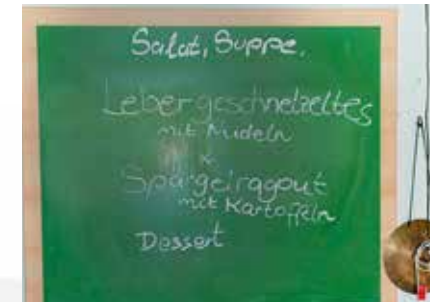 Salat, Suppe.
Lebergeschnetzeltes
mit Nudeln
Spargelragout
mit Kartoffeln
Dessert